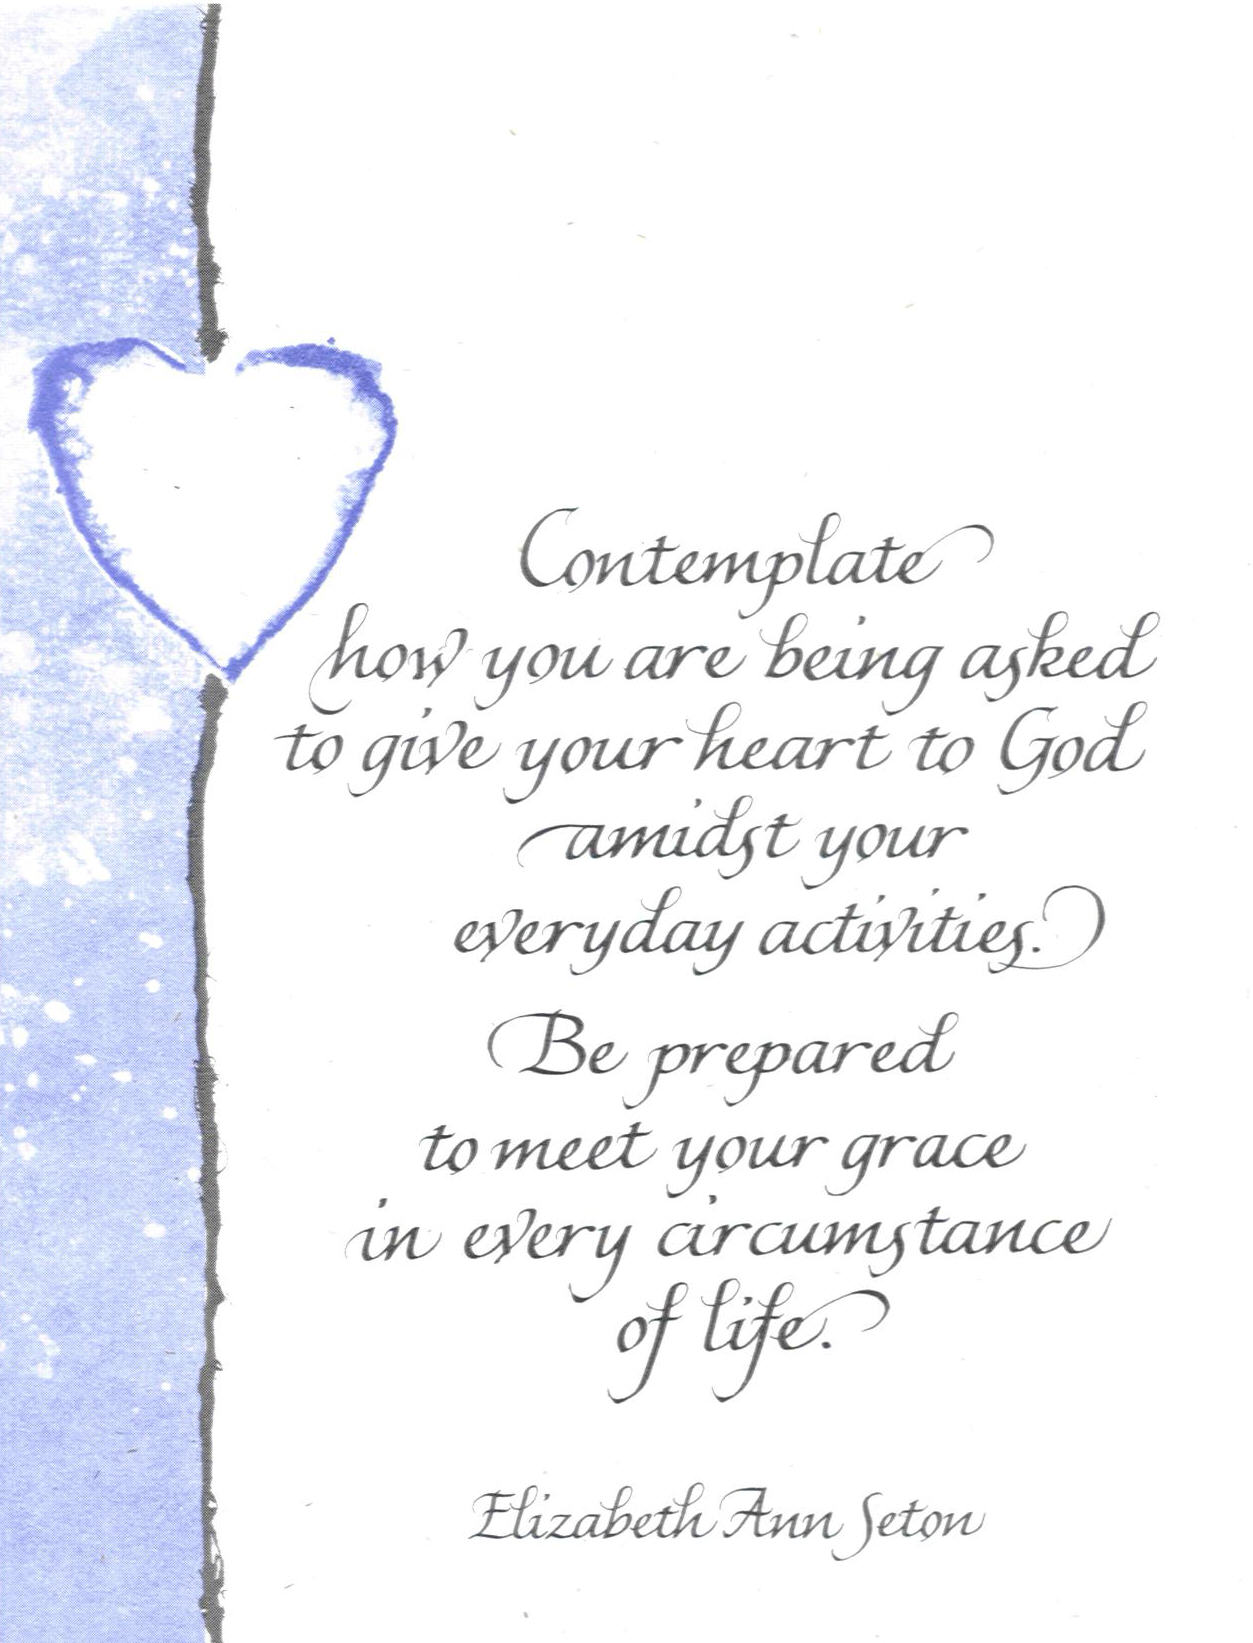 Contemplate
how you are being asked
to give your heart to God
amidst your
everyday activities.
Be prepared
to meet your grace
in every circumstance
of life.
Elizabeth Ann Seton